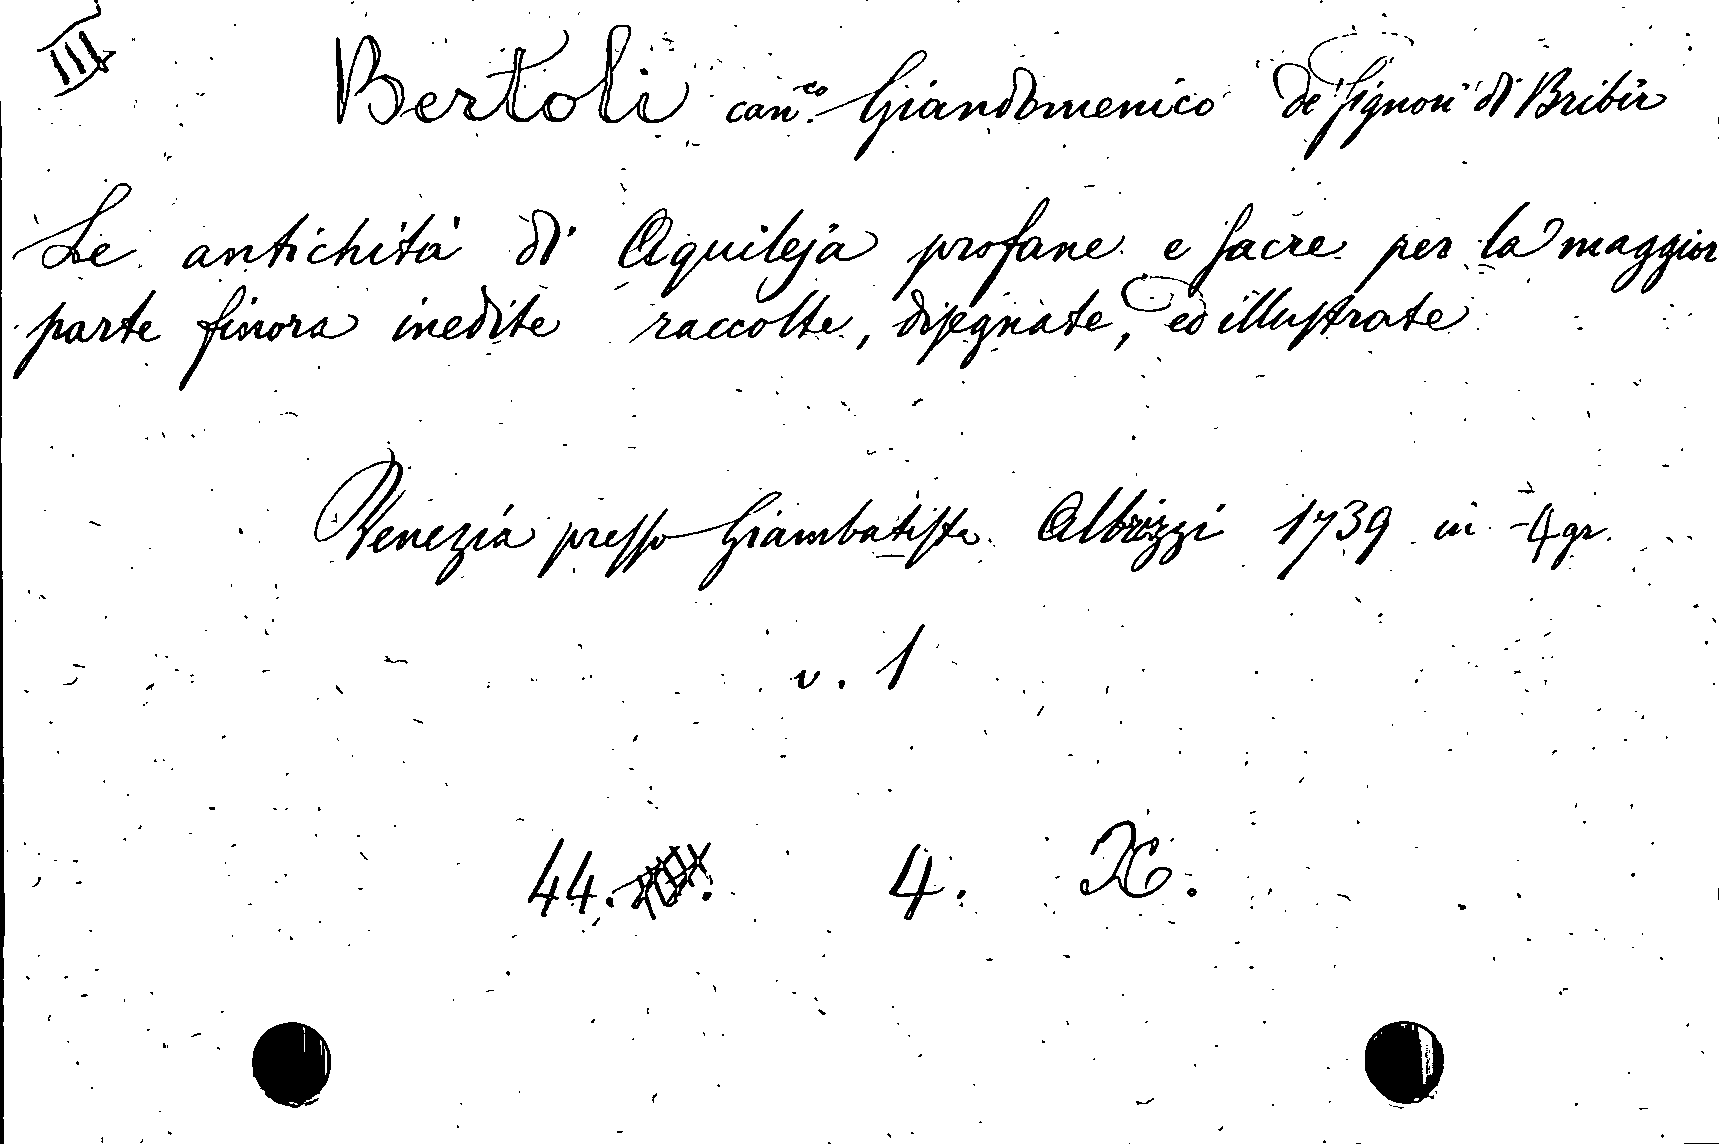 III
Bertoli can.co Giandomenico de' Signori di Bribir
Le antichità di Aquileja profane e sacre per la maggior
parte finora inedite raccolte, disegnate, ed illustrate
Venezia presso Giambatista Albrizzi 1739 in 4 gr.
v. 1
44. 4. X.